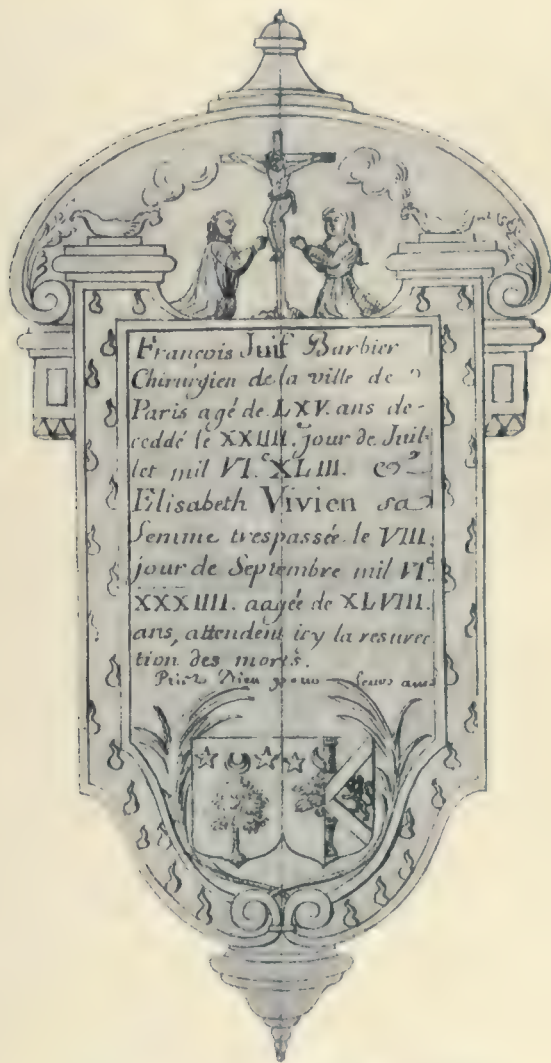 François Juif Barbier
Chirurgien de la ville de
Paris agé de LXV. ans de-
ceddé le XXIIII. jour de Juil-
let mil VI.c XLIII. et
Elisabeth Vivien sa
femme trespassée le VIII.
jour de Septembre mil VI.c
XXXIIII. aagée de XLVIII.
ans, attendent icy la resurec
tion des morts.
Priez Dieu pour leurs ames